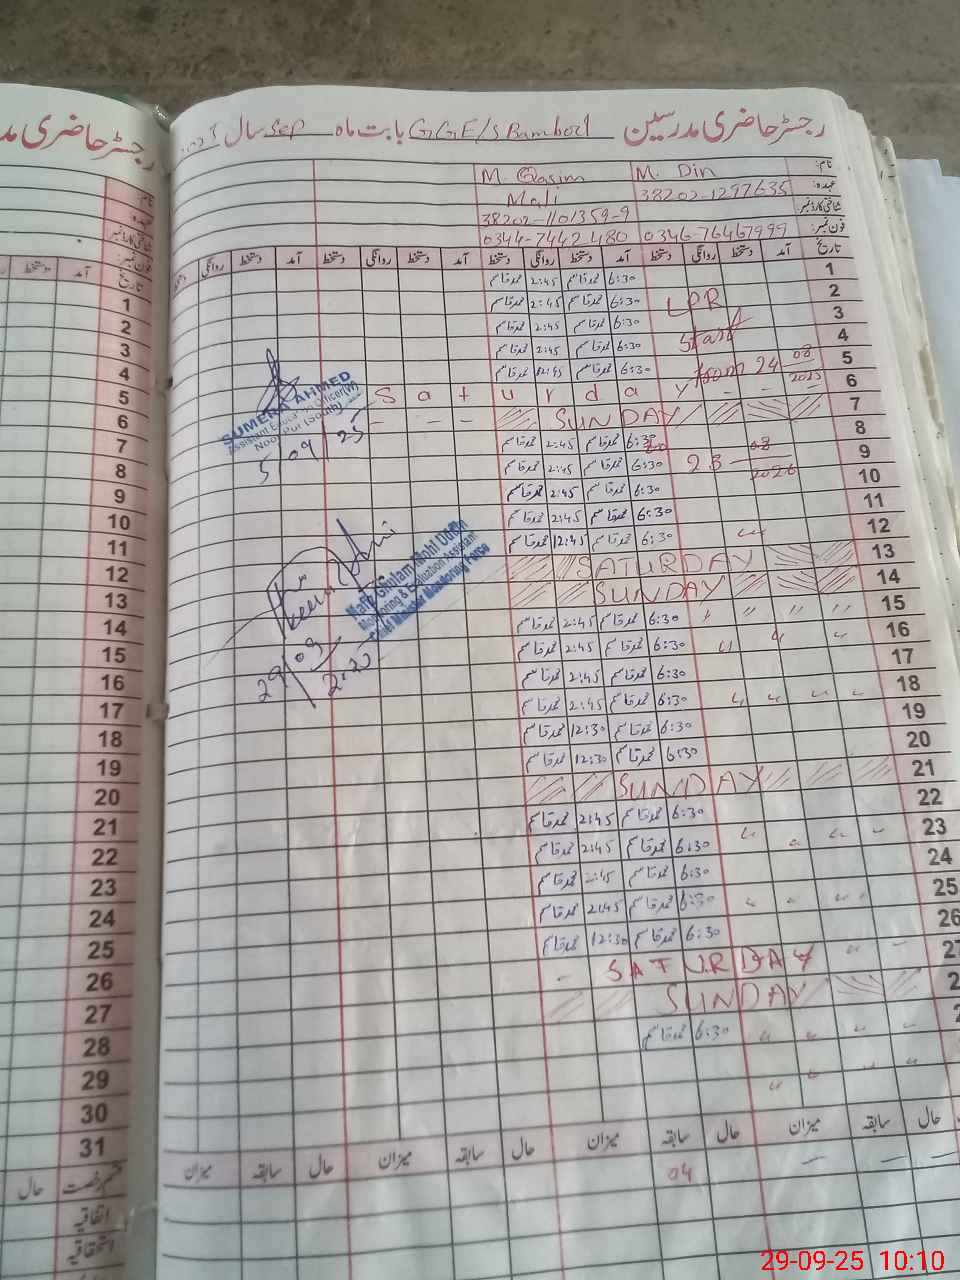 رجسٹر حاضری مدرسین GGE/S Bambool بابت ماہ Sep سال
رجسٹر حاضری مد
نام: M. Din M. Qasim
عہدہ: 38202-1297635 Mali
شناختی کارڈ نمبر: 38202-1101359-9
فون نمبر: 0346-76467999 0344-7442480
تاریخ آمد دستخط روانگی دستخط آمد دستخط روانگی دستخط آمد دستخط روانگی دستخط آمد دستخط روانگی
1 6:30 محمد قاسم 2:45 محمد قاسم
2 LPR 6:30 محمد قاسم 2:45 محمد قاسم
3 Start 6:30 محمد قاسم 2:45 محمد قاسم
4 from 24 08 2025 6:30 محمد قاسم 2:45 محمد قاسم
5 6:30 محمد قاسم 12:45 محمد قاسم
6 Saturday
7 SUNDAY
8 6:30 محمد قاسم 2:45 محمد قاسم
9 23 08 2026 6:30 محمد قاسم 2:45 محمد قاسم
10 6:30 محمد قاسم 2:45 محمد قاسم
11 6:30 محمد قاسم 2:45 محمد قاسم
12 6:30 محمد قاسم 12:45 محمد قاسم
13 SATURDAY
14 SUNDAY
15 6:30 محمد قاسم 2:45 محمد قاسم
16 6:30 محمد قاسم 2:45 محمد قاسم
17 6:30 محمد قاسم 2:45 محمد قاسم
18 6:30 محمد قاسم 2:45 محمد قاسم
19 6:30 محمد قاسم 12:30 محمد قاسم
20 6:30 محمد قاسم 12:30 محمد قاسم
21 SUNDAY
22 6:30 محمد قاسم 2:45 محمد قاسم
23 6:30 محمد قاسم 2:45 محمد قاسم
24 6:30 محمد قاسم 2:45 محمد قاسم
25 6:30 محمد قاسم 2:45 محمد قاسم
26 6:30 محمد قاسم 12:30 محمد قاسم
27 SATURDAY
SUNDAY
6:30 محمد قاسم
حال سابقہ میزان حال سابقہ میزان حال سابقہ میزان حال سابقہ میزان
04
SUMERA AHMED
Assistant Education Officer(W)
Noor Pur (South)
5/09/25
Hafiz Ghulam Mohi Uddin
Monitoring & Evaluation Assistant
Chief Minister Monitoring Force
29/09
نام:
عہدہ:
شناختی کارڈ نمبر:
فون نمبر:
تاریخ آمد دستخط
1
2
3
4
5
6
7
8
9
10
11
12
13
14
15
16
17
18
19
20
21
22
23
24
25
26
27
28
29
30
31
قسم رخصت حال
اتفاقیہ
استحقاقیہ
29-09-25 10:10